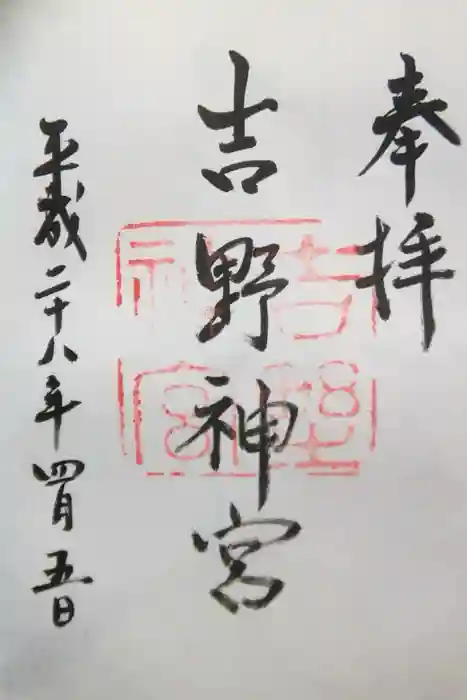 奉拝
吉野神宮
平成二十八年四月五日
吉野神宮